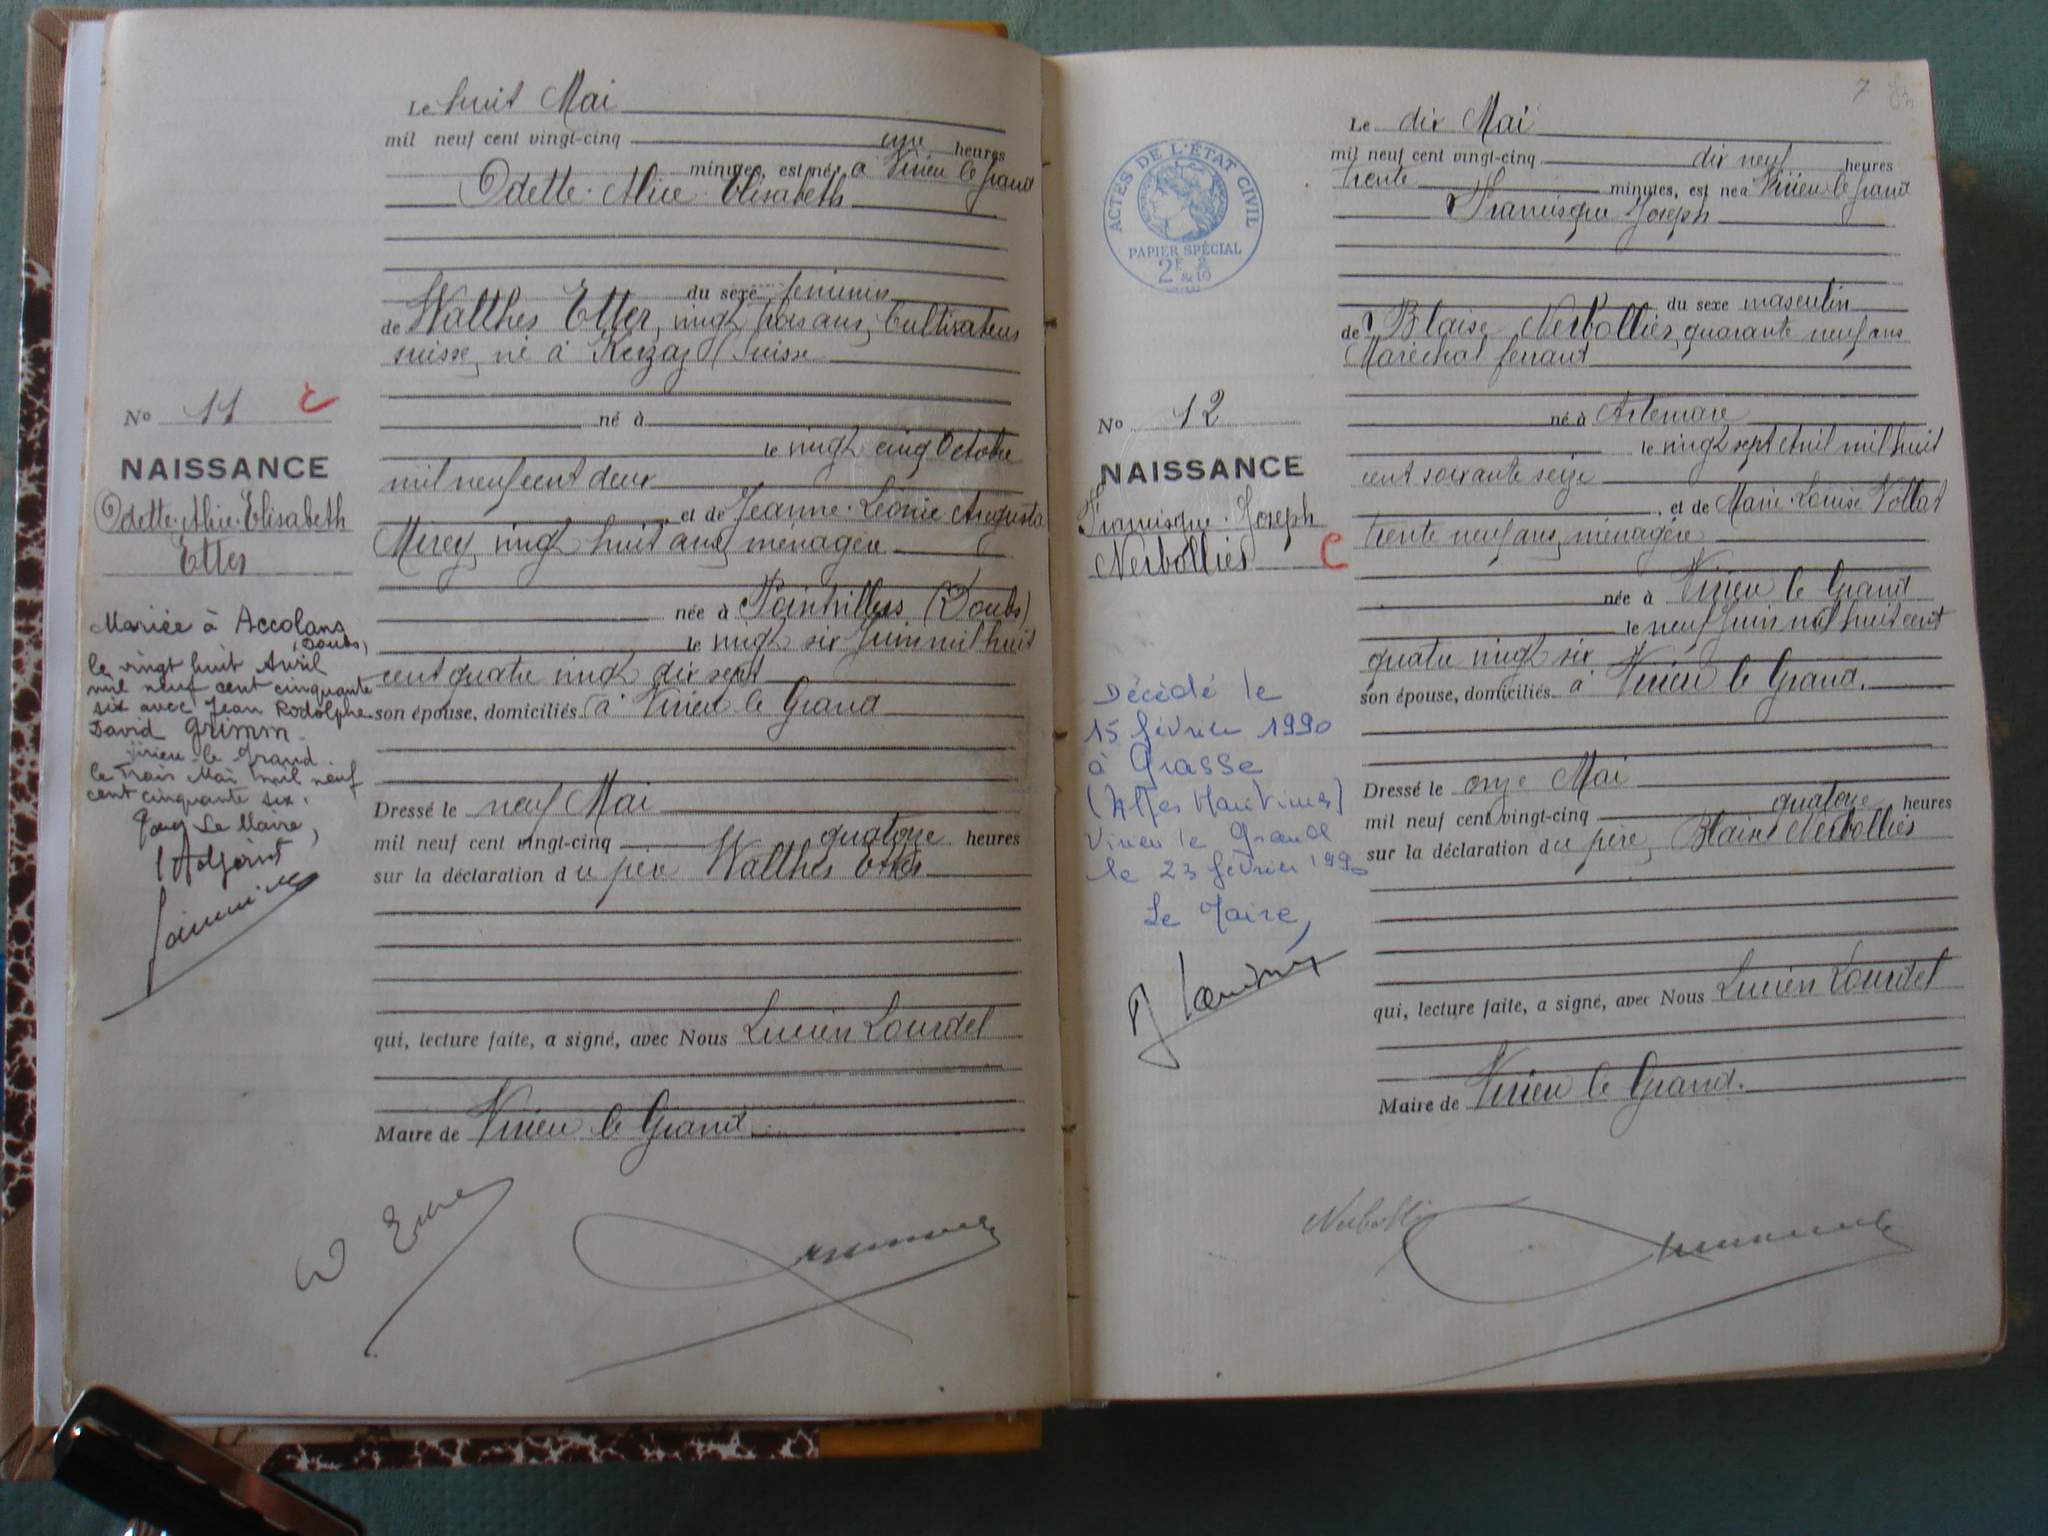 Le huit Mai
mil neuf cent vingt-cinq une heures
minutes, est née à Virieu le Grand
Odette Alice Elisabeth
du sexe féminin
de Walther Etter, vingt trois ans, Cultivateur
suisse, né à Kerzaz (Suisse
né à
le vingt cinq Octobre
mil neuf cent deux
et de Jeanne Léonie Augusta
Mirey, vingt huit ans, ménagère
née à Pointvillers (Doubs)
le vingt six Juin mil huit
cent quatre vingt dix sept
son épouse, domiciliés à Virieu le Grand
Dressé le neuf Mai
mil neuf cent vingt-cinq quatorze heures
sur la déclaration du père Walther Etter
qui, lecture faite, a signé, avec Nous Lucien Lourdel
Maire de Virieu le Grand
No 11
NAISSANCE
Odette Alice Elisabeth
Etter
Mariée à Accolans
(Doubs)
le vingt huit Avril
mil neuf cent cinquante
six avec Jean Rodolphe
David Grimm.
Virieu-le-Grand.
le trois Mai mil neuf
cent cinquante six.
Pour Le Maire,
l'Adjoint
W Etter
7
ACTES DE L'ÉTAT CIVIL
PAPIER SPÉCIAL
2F & 2/10
Le dix Mai
mil neuf cent vingt-cinq dix neuf heures
trente minutes, est né à Virieu le Grand
Francisque Joseph
du sexe masculin
de Blaise Nerbollier, quarante neuf ans
Maréchal ferrant
né à Artemare
le vingt sept Avril mil huit
cent soixante seize
et de Marie Louise Vollat
trente neuf ans, ménagère
née à Virieu le Grand
le neuf Juin mil huit cent
quatre vingt six
son épouse, domiciliés à Virieu le Grand.
Dressé le onze Mai
mil neuf cent vingt-cinq quatorze heures
sur la déclaration du père, Blaise Nerbollier
qui, lecture faite, a signé, avec Nous Lucien Lourdel
Maire de Virieu le Grand.
No 12
NAISSANCE
Francisque Joseph
Nerbollier
C
Décédé le
15 février 1990
à Grasse
(Alpes Maritimes)
Virieu le Grand
le 23 février 1990
Le Maire,
Nerbollier